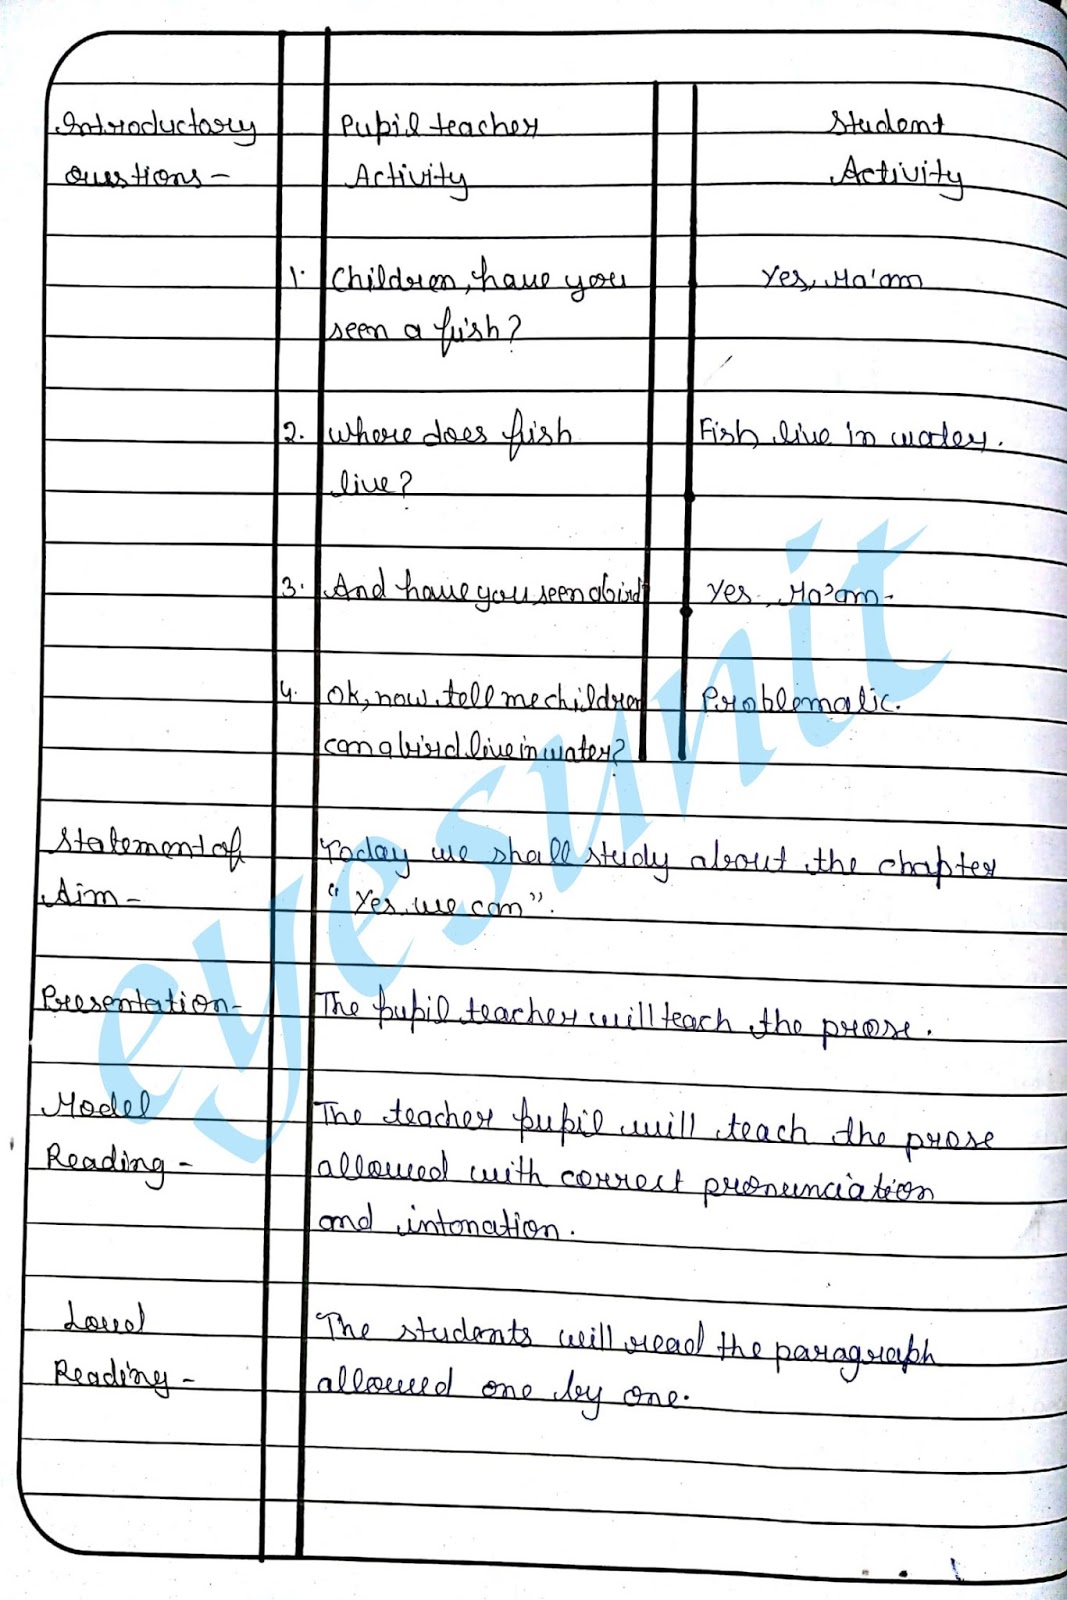 Introductory Pupil teacher Student
Questions - Activity Activity
1. Children, have you Yes, Ma'am
seen a fish?
2. Where does fish Fish live in water.
live?
3. And have you seen a bird Yes, Ma'am.
4. Ok, now tell me children Problematic.
can a bird live in water?
Statement of Today we shall study about the chapter
Aim - "Yes we can".
Presentation - The pupil teacher will teach the prose.
Model The teacher pupil will teach the prose
Reading - allowed with correct pronunciation
and intonation.
Loud The students will read the paragraph
Reading - allowed one by one.
eyesunit